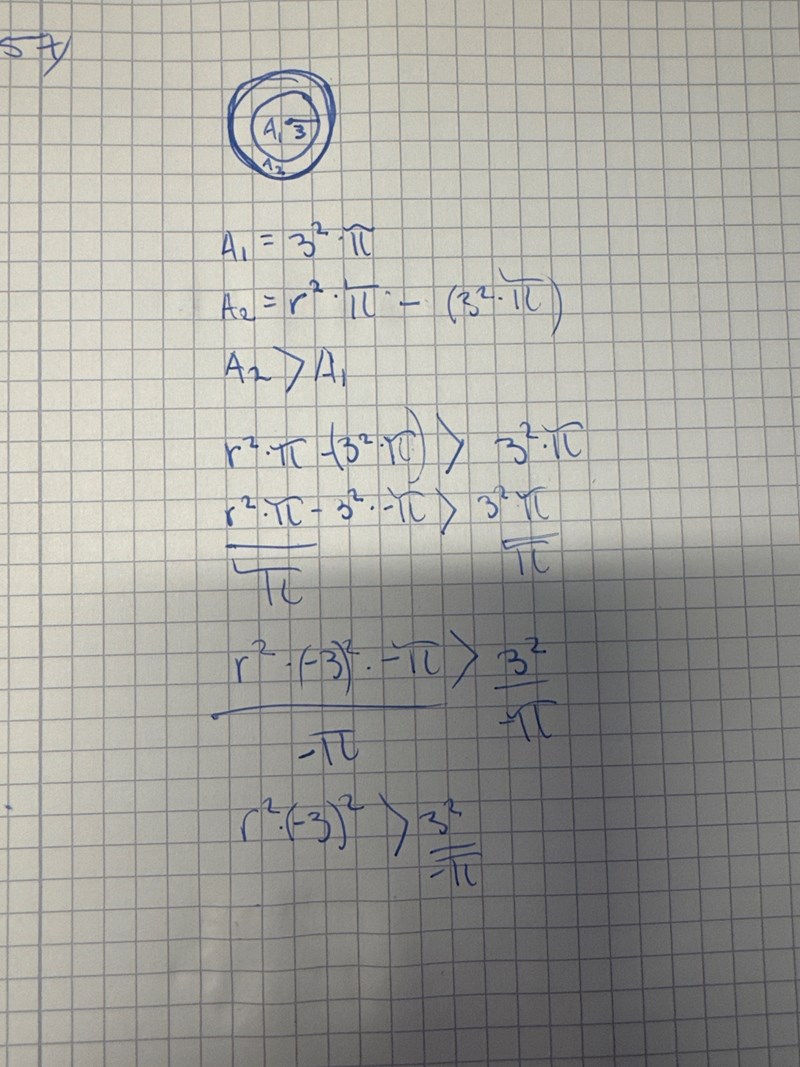 57
A₁ 3
A₂
A₁ = 3² · π
A₂ = r² · π - (3² · π)
A₂ > A₁
r² · π - (3² · π) > 3² · π
r² · π - 3² · -π > 3² · π
π π
r² · (-3)² · -π > 3²
-π -π
r² · (-3)² > 3²
-π